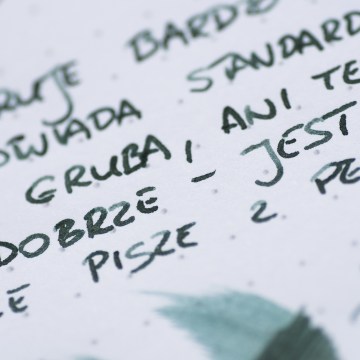 RUJE BARDZO
OWIADA STANDARD
GRUBA, ANI TE
DOBRZE – JEST
ŻE PISZE Z PE